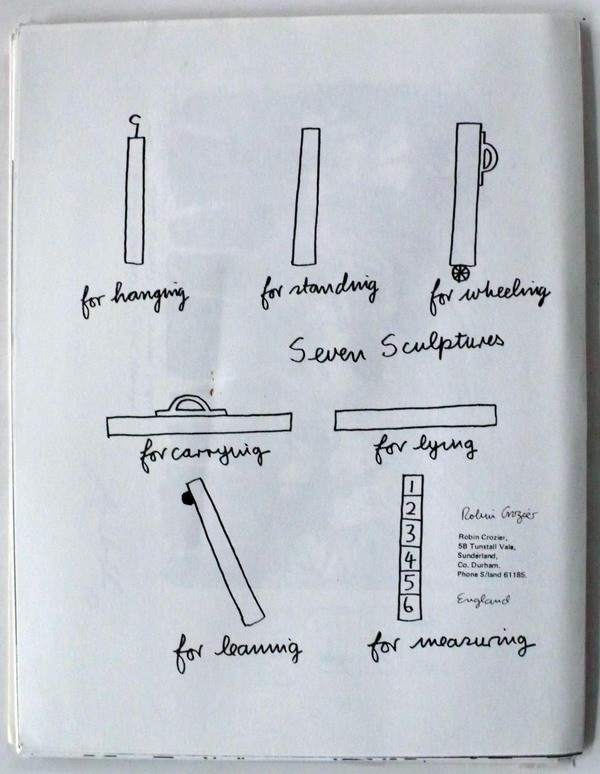 for hanging
for standing
for wheeling
Seven Sculptures
for carrying
for lying
for leaning
1
2
3
4
5
6
for measuring
Robin Crozier
Robin Crozier,
5B Tunstall Vale,
Sunderland,
Co. Durham.
Phone S/land 61185.
England